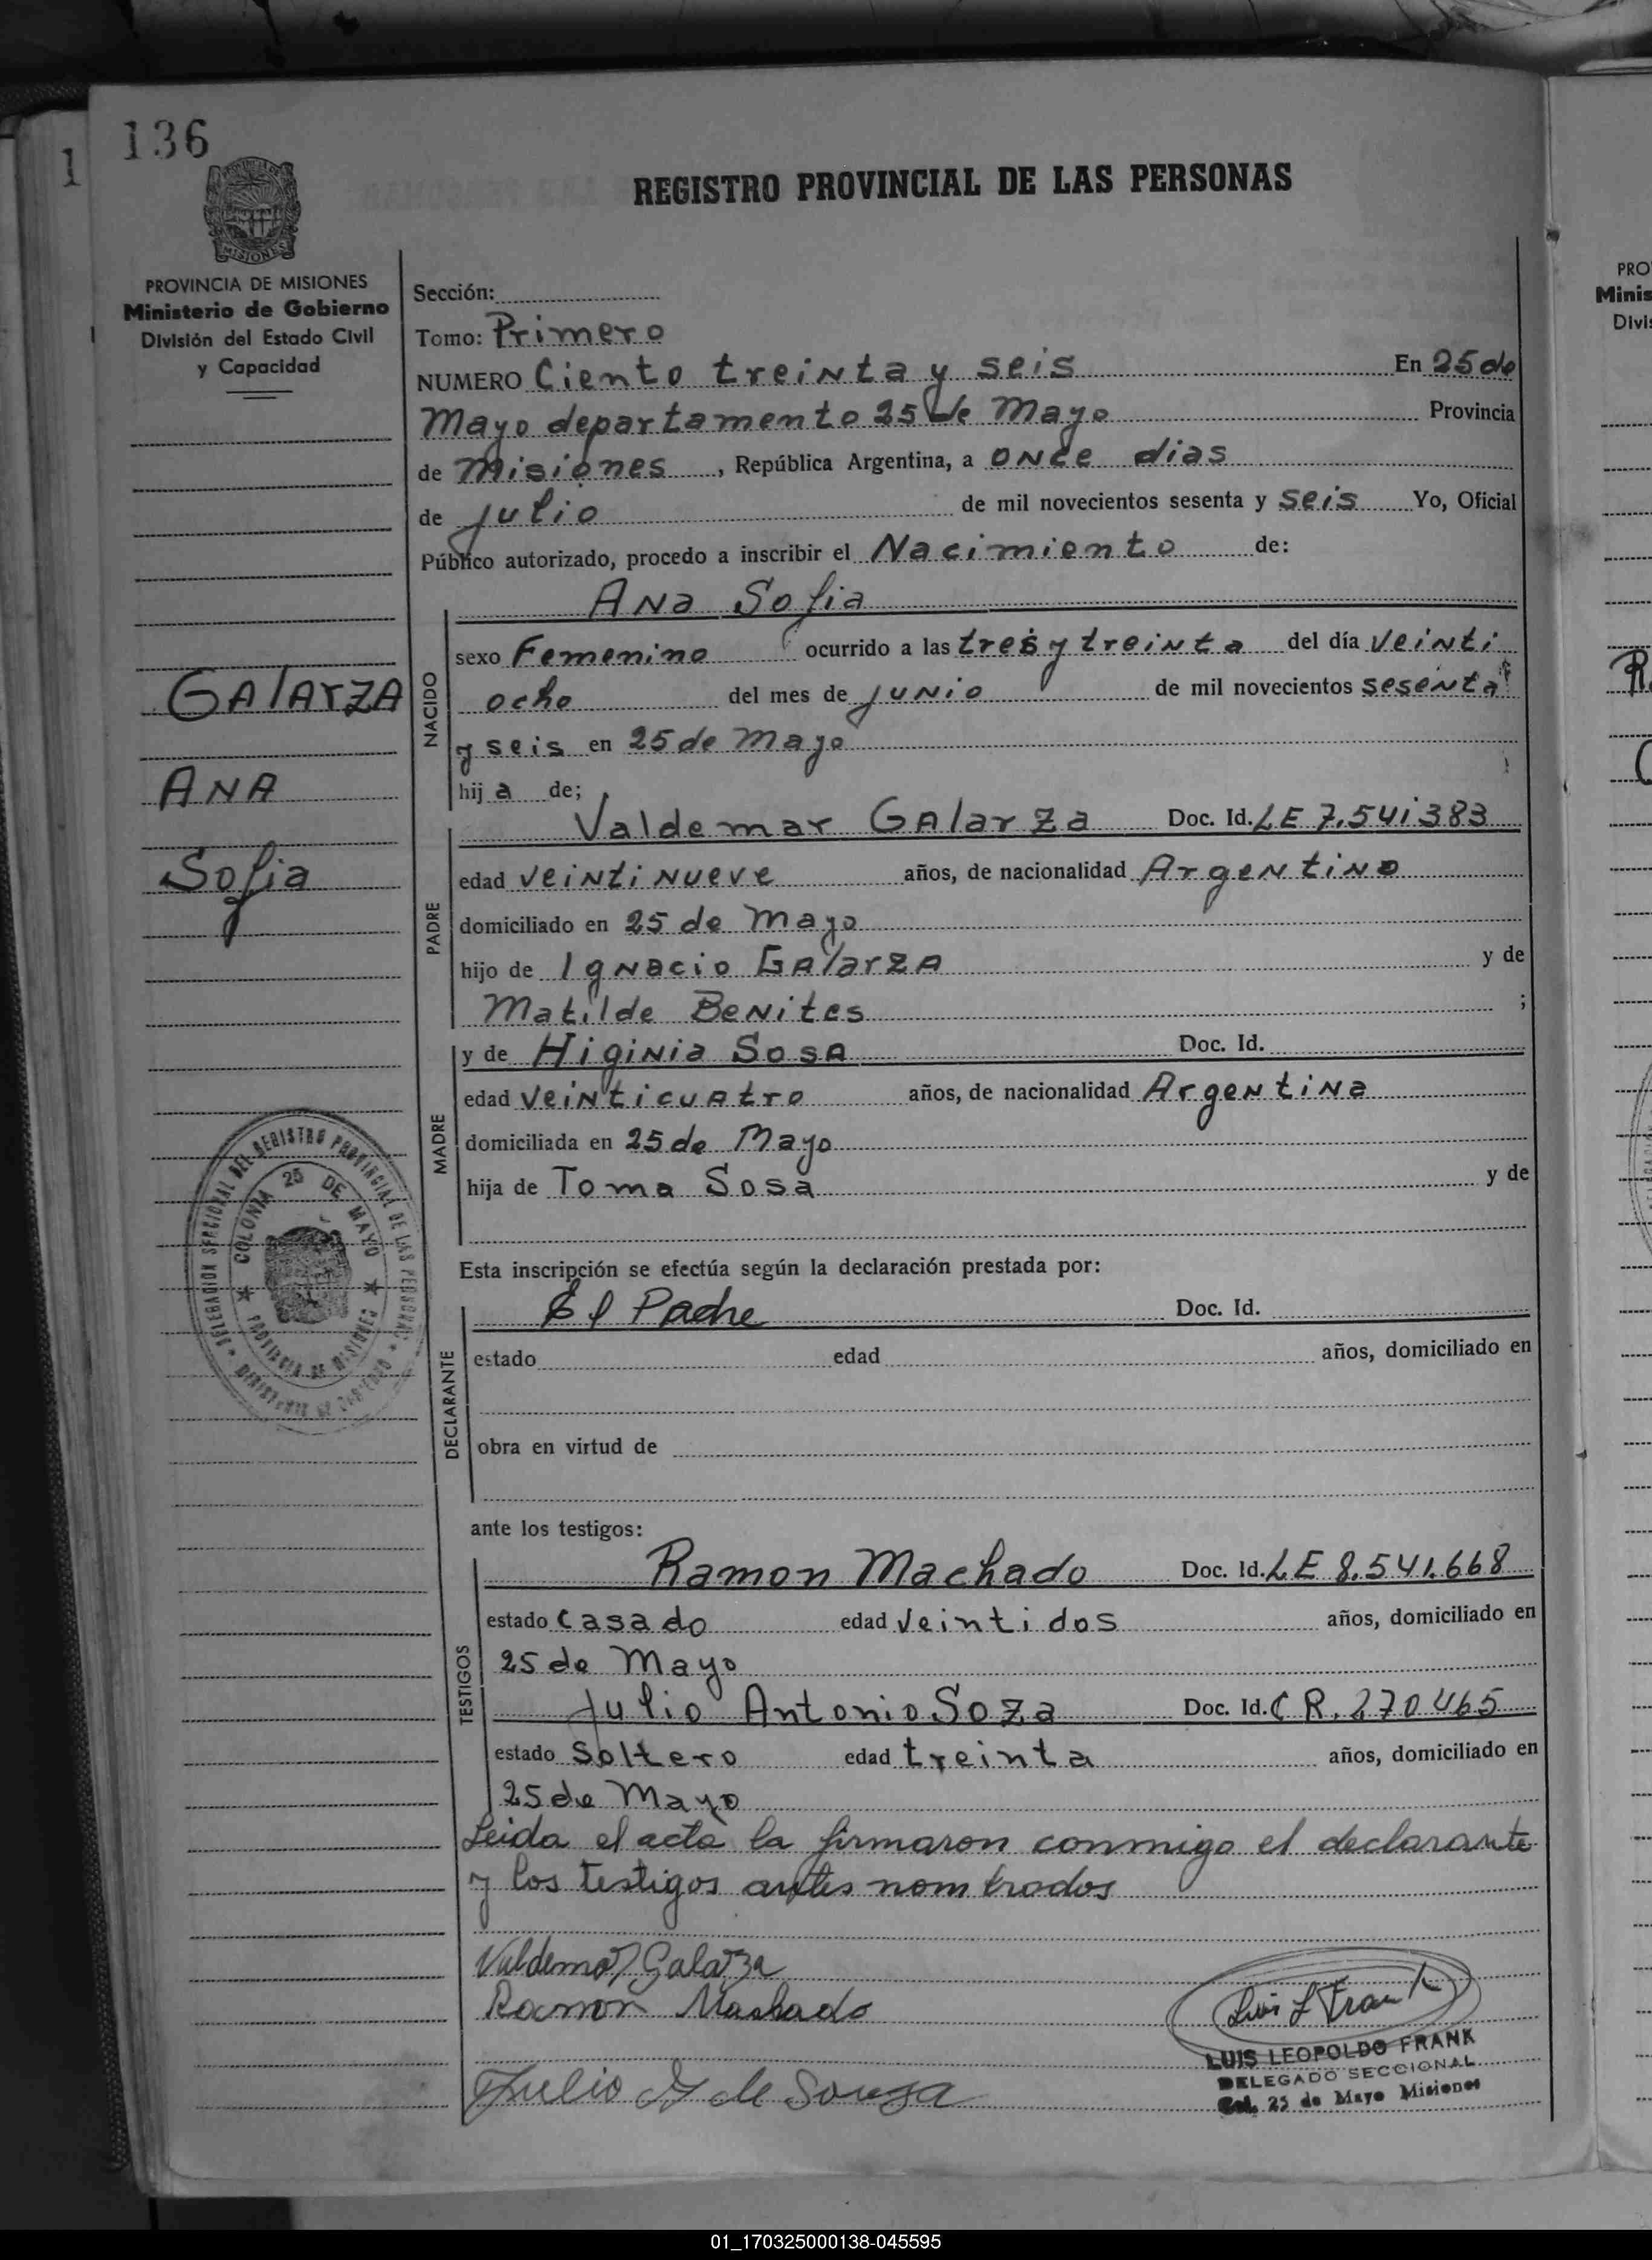 136
1
REGISTRO PROVINCIAL DE LAS PERSONAS
MISIONES
PROVINCIA DE MISIONES
Ministerio de Gobierno
División del Estado Civil
y Capacidad
Sección:
Tomo: Primero
NUMERO Ciento treinta y seis En 25 de
Mayo departamento 25 de Mayo Provincia
de Misiones, República Argentina, a once dias
de Julio de mil novecientos sesenta y seis Yo, Oficial
Público autorizado, procedo a inscribir el Nacimiento de:
Ana Sofia
NACIDO
sexo Femenino ocurrido a las tres y treinta del día veinti
ocho del mes de junio de mil novecientos sesenta
y seis en 25 de Mayo
hija de;
GALARZA
ANA
Sofia
PADRE
Valdemar Galarza Doc. Id. LE 7.541383
edad veintinueve años, de nacionalidad Argentino
domiciliado en 25 de Mayo
hijo de Ignacio Galarza y de
Matilde Benites ;
MADRE
y de Higinia Sosa Doc. Id.
edad veinticuatro años, de nacionalidad Argentina
domiciliada en 25 de Mayo
hija de Toma Sosa y de
DELEGACION SECCIONAL DEL REGISTRO PROVINCIAL DE LAS PERSONAS
COLONIA 25 DE MAYO
PROVINCIA DE MISIONES
MINISTERIO DE GOBIERNO
Esta inscripción se efectúa según la declaración prestada por:
DECLARANTE
El Padre Doc. Id.
estado edad años, domiciliado en
obra en virtud de
ante los testigos:
TESTIGOS
Ramon Machado Doc. Id. LE 8.541.668
estado casado edad veintidos años, domiciliado en
25 de Mayo
Julio Antonio Soza Doc. Id. CR. 270465
estado soltero edad treinta años, domiciliado en
25 de Mayo
Leida el acta la firmaron conmigo el declarante
y los testigos antes nombrados
Valdemar Galarza
Ramon Machado
Julio A de Souza
Luis L Frank
LUIS LEOPOLDO FRANK
DELEGADO SECCIONAL
Col. 25 de Mayo Misiones
PRO
Minis
Divi
01_170325000138-045595